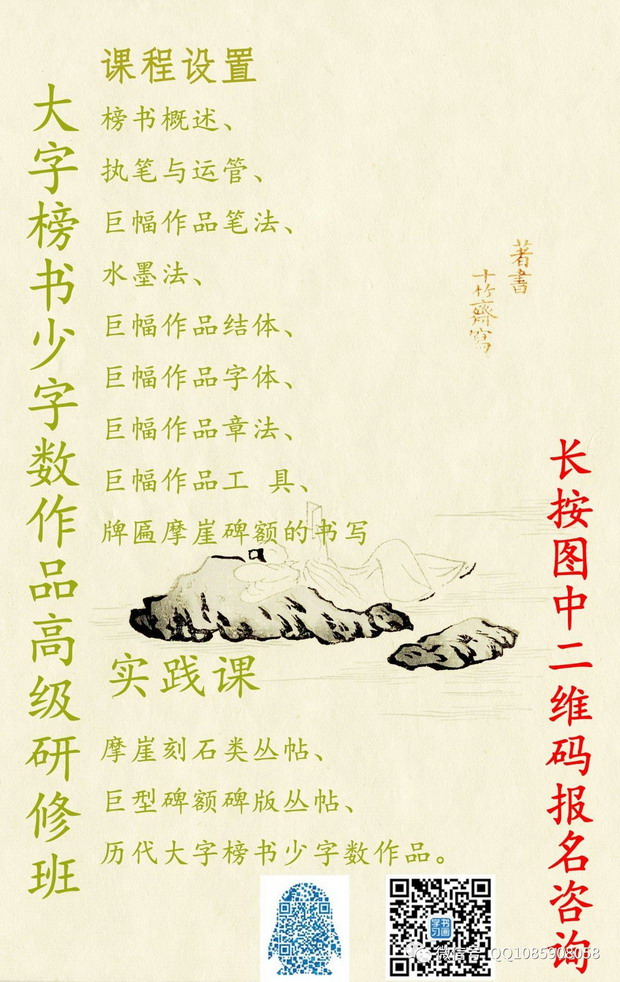 大字榜书少字数作品高级研修班
课程设置
榜书概述、
执笔与运管、
巨幅作品笔法、
水墨法、
巨幅作品结体、
巨幅作品字体、
巨幅作品章法、
巨幅作品工 具、
牌匾摩崖碑额的书写
实践课
摩崖刻石类丛帖、
巨型碑额碑版丛帖、
历代大字榜书少字数作品。
著書
十竹齋寫
长按图中二维码报名咨询
学书习画
微信号: QQ1085908058